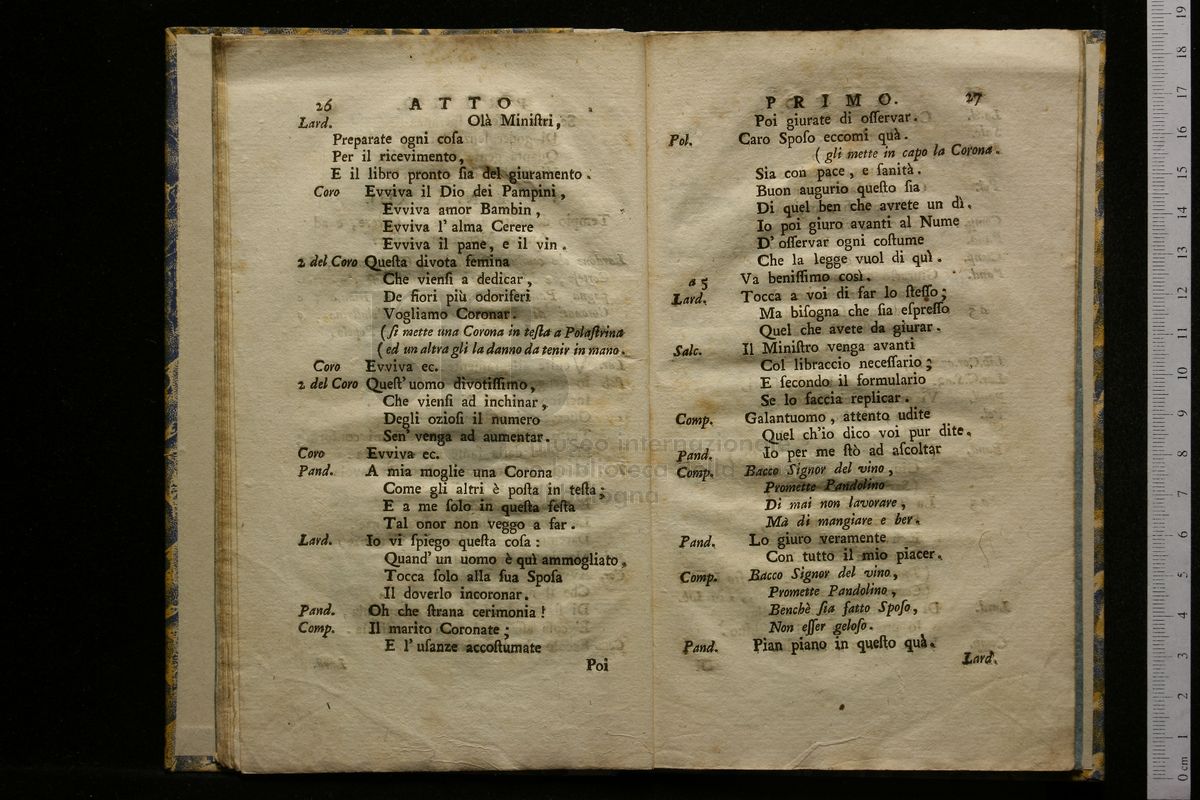 26 ATTO
Lard. Olà Miniſtri,
Preparate ogni coſa
Per il ricevimento,
E il libro pronto ſia del giuramento.
Coro Evviva il Dio dei Pampini,
Evviva amor Bambin,
Evviva l' alma Cerere
Evviva il pane, e il vin.
2 del Coro Queſta divota femina
Che vienſi a dedicar,
De fiori più odoriferi
Vogliamo Coronar.
(ſi mette una Corona in teſta a Polaſtrina
(ed un altra gli la danno da tenir in mano.
Coro Evviva ec.
2 del Coro Queſt' uomo divotiſſimo,
Che vienſi ad inchinar,
Degli ozioſi il numero
Sen' venga ad aumentar.
Coro Evviva ec.
Pand. A mia moglie una Corona
Come gli altri è poſta in teſta;
E a me ſolo in queſta feſta
Tal onor non veggo a far.
Lard. Io vi ſpiego queſta coſa:
Quand' un uomo è quì ammogliato,
Tocca ſolo alla ſua Spoſa
Il doverlo incoronar.
Pand. Oh che ſtrana cerimonia!
Comp. Il marito Coronate;
E l' uſanze accoſtumate
Poi
PRIMO. 27
Poi giurate di oſſervar.
Pol. Caro Spoſo eccomi quà.
(gli mette in capo la Corona.
Sia con pace, e ſanità.
Buon augurio queſto ſia
Di quel ben che avrete un dì.
Io poi giuro avanti al Nume
D' oſſervar ogni coſtume
Che la legge vuol di quì.
a 5 Va beniſſimo così.
Lard. Tocca a voi di far lo ſteſſo;
Ma biſogna che ſia eſpreſſo
Quel che avete da giurar.
Salc. Il Miniſtro venga avanti
Col libraccio neceſſario;
E ſecondo il formulario
Se lo faccia replicar.
Comp. Galantuomo, attento udite
Quel ch'io dico voi pur dite.
Pand. Io per me ſtò ad aſcoltar
Comp. Bacco Signor del vino,
Promette Pandolino
Di mai non lavorare,
Mà di mangiare e ber.
Pand. Lo giuro veramente
Con tutto il mio piacer.
Comp. Bacco Signor del vino,
Promette Pandolino,
Benchè ſia fatto Spoſo,
Non eſſer geloſo.
Pand. Pian piano in queſto quà.
Lard.